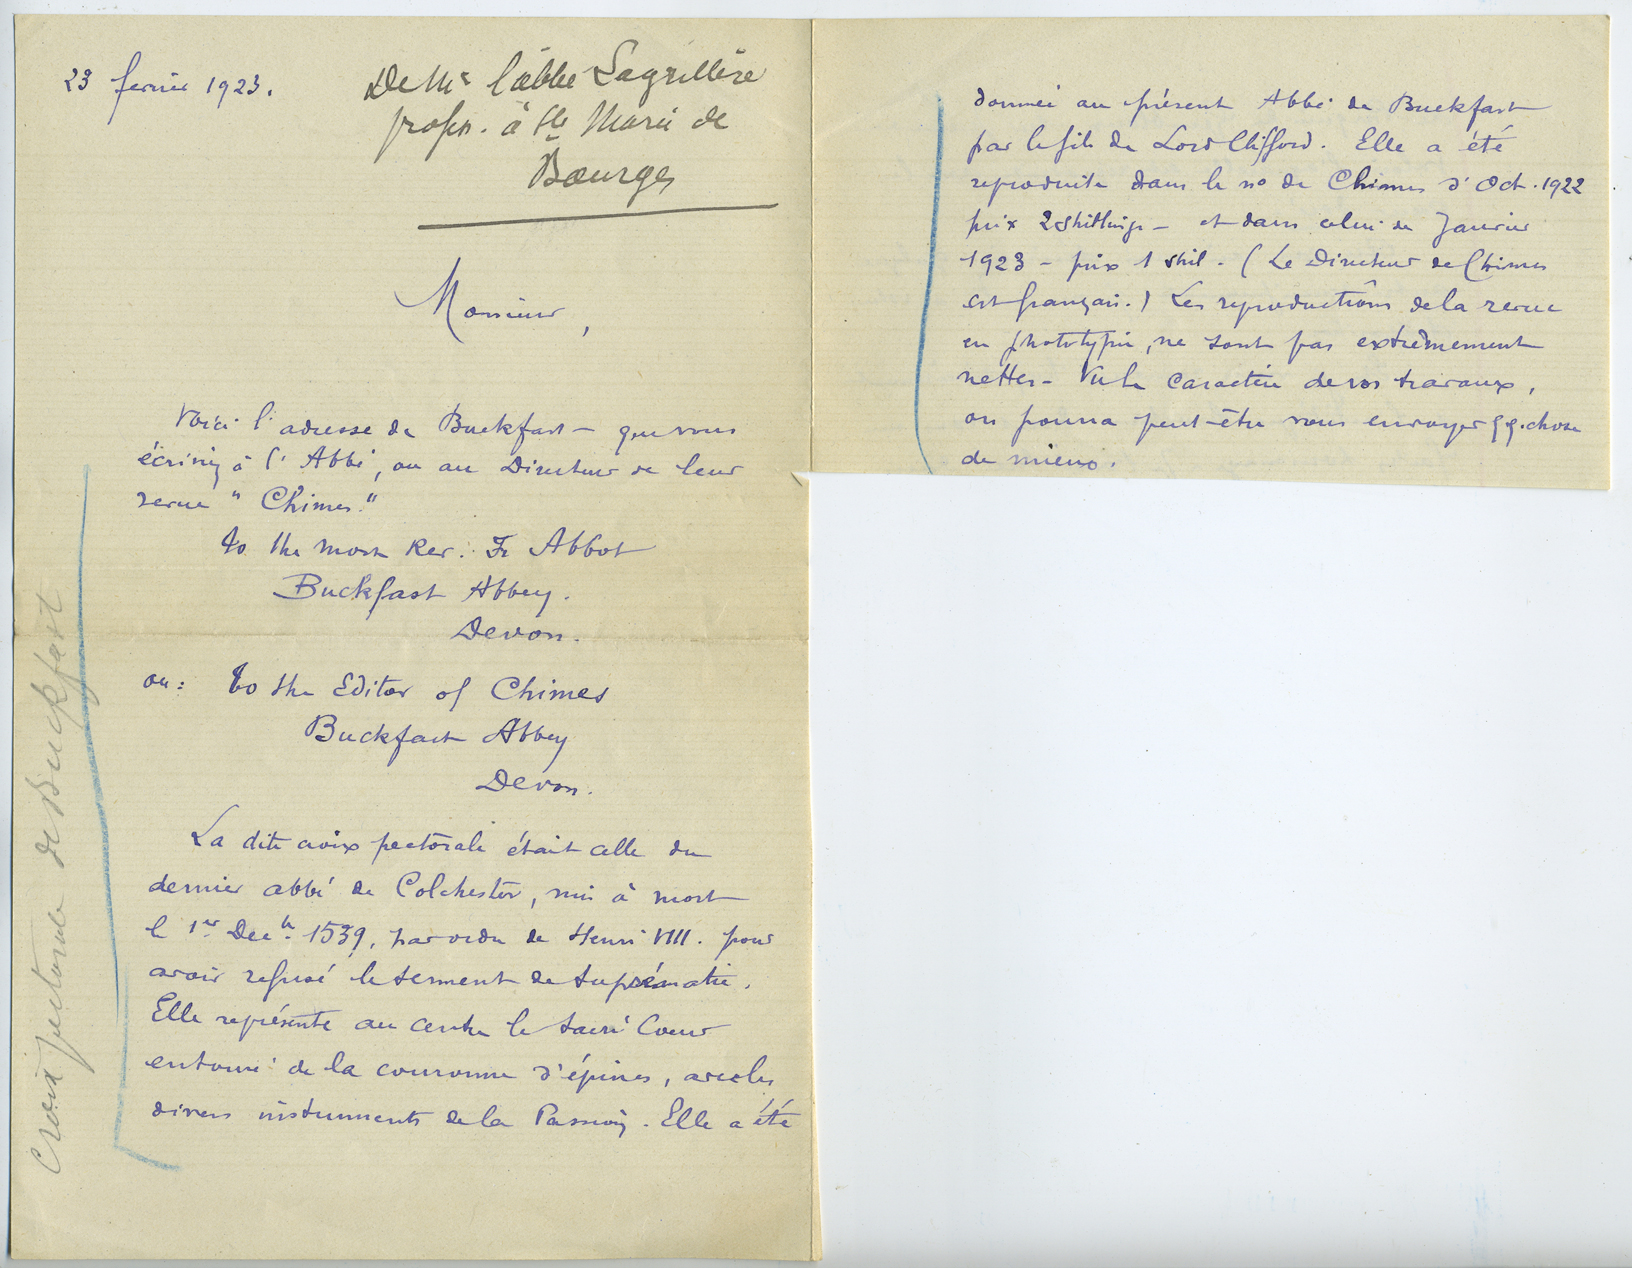 23 fevrier 1923.
De Mr l'abbé Lagrillère
profess. à Ste Marie de
Bourges
Monsieur,
Voici l'adresse de Buckfast – que vous
écriviez à l'Abbé, ou au Directeur de leur
revue "Chimes."
to the most Rev. Fr Abbot
Buckfast Abbey.
Devon.
ou: to the Editor of Chimes
Buckfast Abbey
Devon.
La dite croix pectorale était celle du
dernier abbé de Colchester, mis à mort
le 1er Decbr 1539, par ordre de Henri VIII. pour
avoir refusé le serment de suprématie.
Elle représente au centre le Sacré Coeur
entouré de la couronne d'épines, avec les
divers instruments de la Passion. Elle a été
Croix pectorale de Buckfast
donnée au présent Abbé de Buckfast
par le fils de Lord Clifford. Elle a été
reproduite dans le no de Chimes d'Oct. 1922
prix 2 shillings – et dans celui de Janvier
1923 – prix 1 shil. – (Le Directeur de Chimes
est français.) Les reproductions de la revue
en phototypie, ne sont pas extrêmement
nettes – Vu le caractère de vos travaux,
on pourra peut-être vous envoyer qq. chose
de mieux.